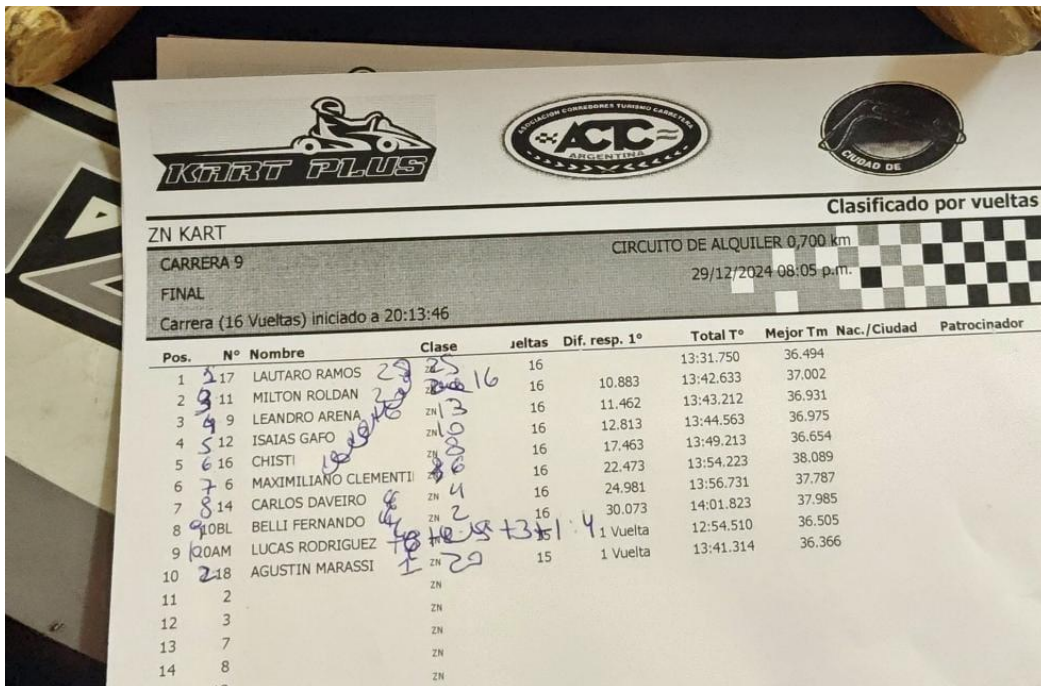 KART PLUS
ASOCIACION CORREDORES TURISMO CARRETERA
ACTC
ARGENTINA
CIUDAD DE
Clasificado por vueltas
ZN KART
CARRERA 9 CIRCUITO DE ALQUILER 0,700 km
FINAL 29/12/2024 08:05 p.m.
Carrera (16 Vueltas) iniciado a 20:13:46
Pos. Nº Nombre Clase ueltas Dif. resp. 1º Total Tº Mejor Tm Nac./Ciudad Patrocinador
1 17 LAUTARO RAMOS 25 16 13:31.750 36.494
2 3 11 MILTON ROLDAN 16 16 10.883 13:42.633 37.002
3 4 9 LEANDRO ARENA ZN 13 16 11.462 13:43.212 36.931
4 5 12 ISAIAS GAFO ZN 10 16 12.813 13:44.563 36.975
5 6 16 CHISTI ZN 8 16 17.463 13:49.213 36.654
6 7 6 MAXIMILIANO CLEMENTI 6 16 22.473 13:54.223 38.089
7 8 14 CARLOS DAVEIRO ZN 4 16 24.981 13:56.731 37.787
8 9 10BL BELLI FERNANDO ZN 2 16 30.073 14:01.823 37.985
9 20AM LUCAS RODRIGUEZ +3+1:4 1 Vuelta 12:54.510 36.505
10 2 18 AGUSTIN MARASSI 1 ZN 20 15 1 Vuelta 13:41.314 36.366
11 2 ZN
12 3 ZN
13 7 ZN
14 8 ZN
ZN